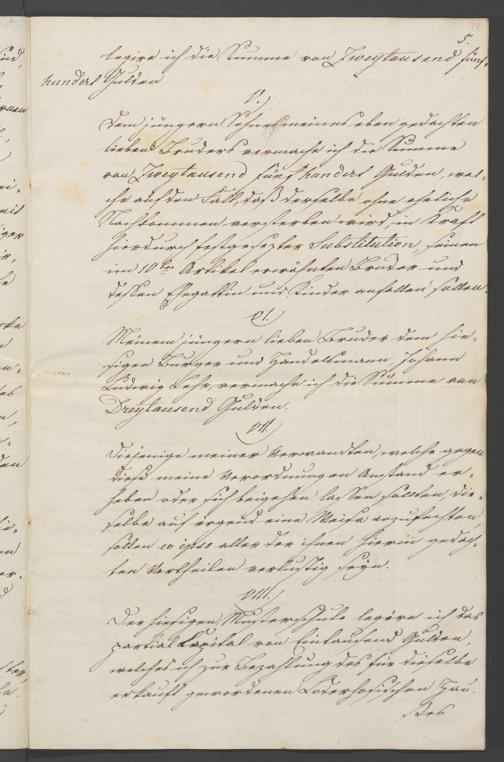 5.
legire ich die Summe von Zweytausend fünf,
hundert Gulden
V.)
Dem jüngern Sohne meines eben gedachten
lieben Bruders vermache ich die Summe
von Zweytausend fünfhundert Gulden, wel-
che auf den Fall, daß derselbe ohne eheliche
Nachkommen versterben wird, in Kraft
hierdurch festgesetzter Substitution, seinen
im 10ten Artikel erwähnten Bruder und
dessen Ehegattin und Kinder anfallen sollen.
VI.)
Meinem jüngern lieben Bruder dem hie-
sigen Burger und Handelsmann, Johann
Ludwig Lehr, vermache ich die Summe von
Dreytausend Gulden.
VII.)
Diejenige meiner Verwandten, welche gegen
diese meine Verordnungen Anstand er-
heben oder sich beigehen lassen sollten, die-
selbe auf irgend eine Weise anzufechten,
sollen eo ipso aller der ihnen hierin gedach-
ten Vortheilen verlustig seyn.
VIII.)
Der hiesigen Musterschule legire ich das
partial Kapital von Eintausend Gulden,
welches ich zur Bezahlung des für dieselbe
erkauft gewordenen Hau-
ses